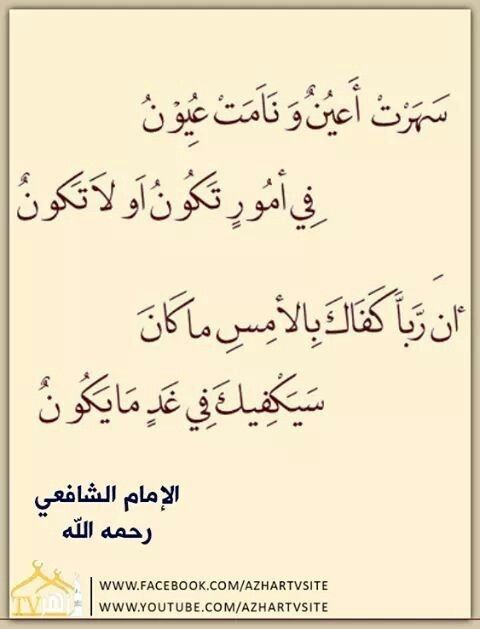 سَهَرْت أَعيُنٌ وَ نَاَمَتْ عُيِوْنُ
فِي أمُورٍ تَكُونُ اَو لاَ تَكونٌ
أنَ رَّباَّ كَفَاكَ بِالأمِسِ ماكَانَ
سَيَكْفِيكَ فِي غَدٍ مَايَكُونٌ
الإمام الشافعي
رحمه الله
WWW.FACEBOOK.COM/AZHARTVSITE
WWW.YOUTUBE.COM/AZHARTVSITE
TV